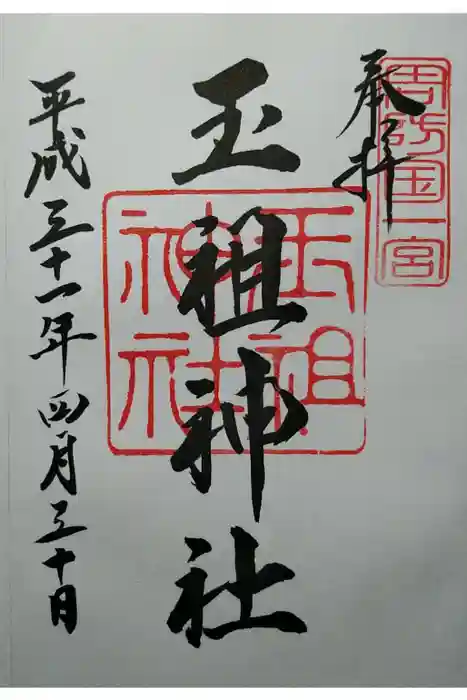 奉拝
周防国一宮
玉祖神社
玉祖神社
平成三十一年四月三十日